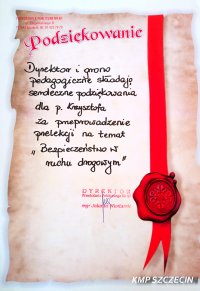 Podziękowanie
Dyrektor i grono
pedagogiczne składają
serdeczne podziękowania
dla p. Krzysztofa
za przeprowadzenie
prelekcji na temat
„Bezpieczeństwo w
ruchu drogowym”
DYREKTOR
KMP SZCZECIN